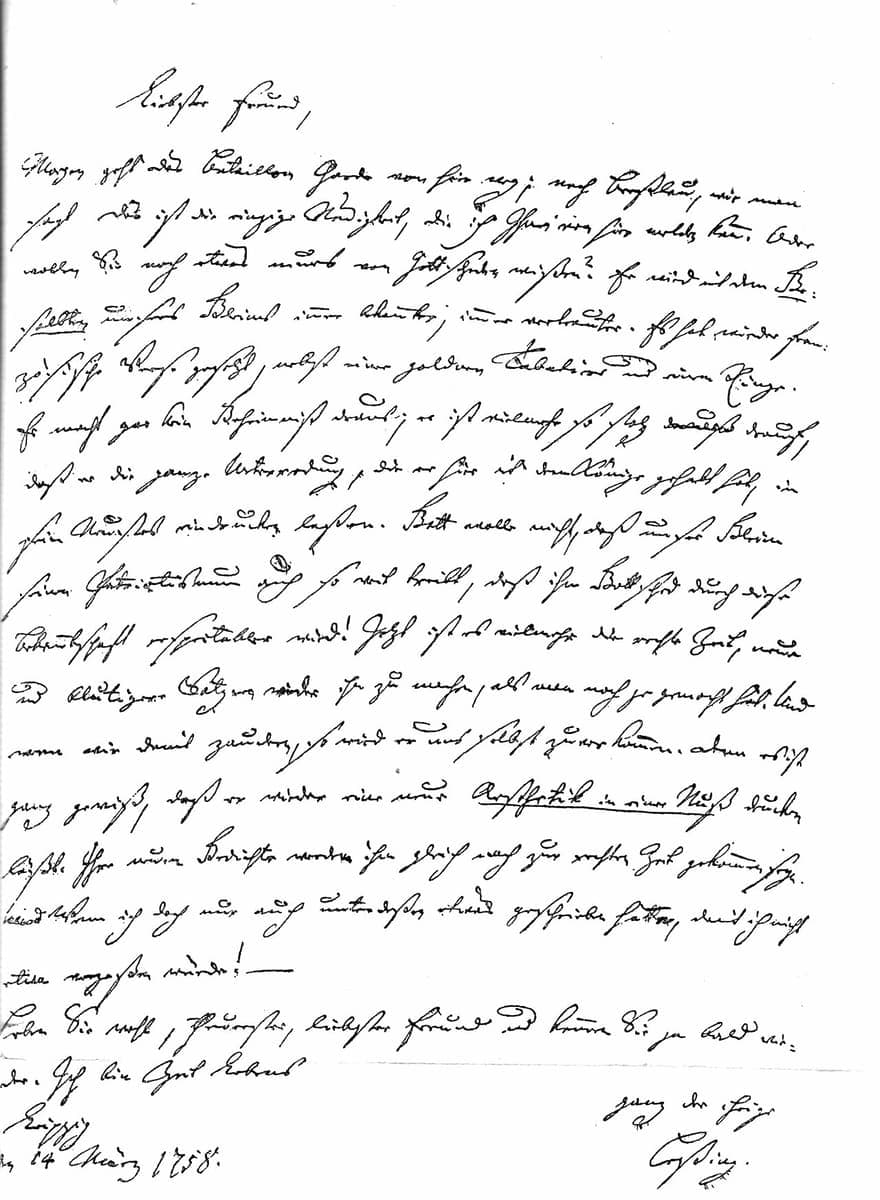 Liebster Freund,
Morgen geht das Bataillon Garde von hier weg; nach Breßlau, wie man
sagt Das ist die einzige Neuigkeit, die ich Ihnen von hier melden kan. Oder
wollen Sie noch etwas neues von Gottscheden wißen? Er wird mit dem Be-
selbten unsers Kleins immer bekannter, immer vertrauter. Er hat wieder fran-
zösische Verse gesetzt, nebst einer goldnen Tabatiere und einem Ringe.
Er macht gar kein Geheimniß draus; er ist vielmehr so stolz drauf,
daß er die ganze Unterredung, die er hier mit dem Könige gehabt hat, in
sein Neustes eindrucken laßen. Gott wolle nicht, daß unser Kleim
seinen Patriotismum auch so weit treibt, daß ihm Gottsched durch diese
Bekanntschaft respectabler wird! Jetzt ist es vielmehr die rechte Zeit, neue
und blutigere Satyren wider ihn zu machen, als man noch je gemacht hat. Und
wenn wir damit zaudern, so wird er uns selbst zuvor kommen. denn es ist
ganz gewiß, daß er wieder eine neue Aesthetik in einer Nuß drucken
läßt. Ihre neuen Gedichte werden ihm gleich noch zur rechten Zeit gekommen seyn.
Wenn ich doch nur auch unterdeßen etwas geschrieben hätte, damit ich nicht
etwa vergeßen würde! —
Leben Sie wohl, theuerster, liebster Freund und kommen Sie ja bald wie-
der. Ich bin Zeit Lebens
ganz der ihrige
Leßing.
Leipzig
den 14 März 1758.